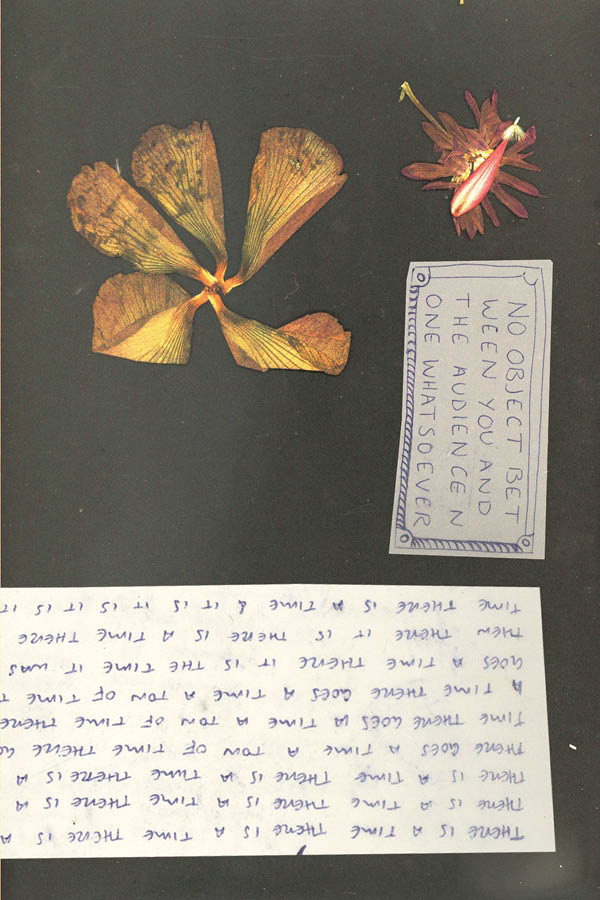 NO OBJECT BET
WEEN YOU AND
THE AUDIENCE N
ONE WHATSOEVER
THERE IS A TIME THERE IS A TIME THERE IS A
THERE IS A TIME THERE IS A TIME THERE IS A
THERE IS A TIME THERE IS A TIME THERE IS A
THERE GOES A TIME A TON OF TIME THERE GO
TIME THERE GOES A TIME A TON OF TIME THERE
A TIME THERE GOES A TIME A TON OF TIME T
GOES A TIME THERE IT IS THE TIME IT WAS
THEN THERE IT IS THERE IS A TIME THERE
TIME THERE IS A TIME & IT IS IT IS IT IS IT